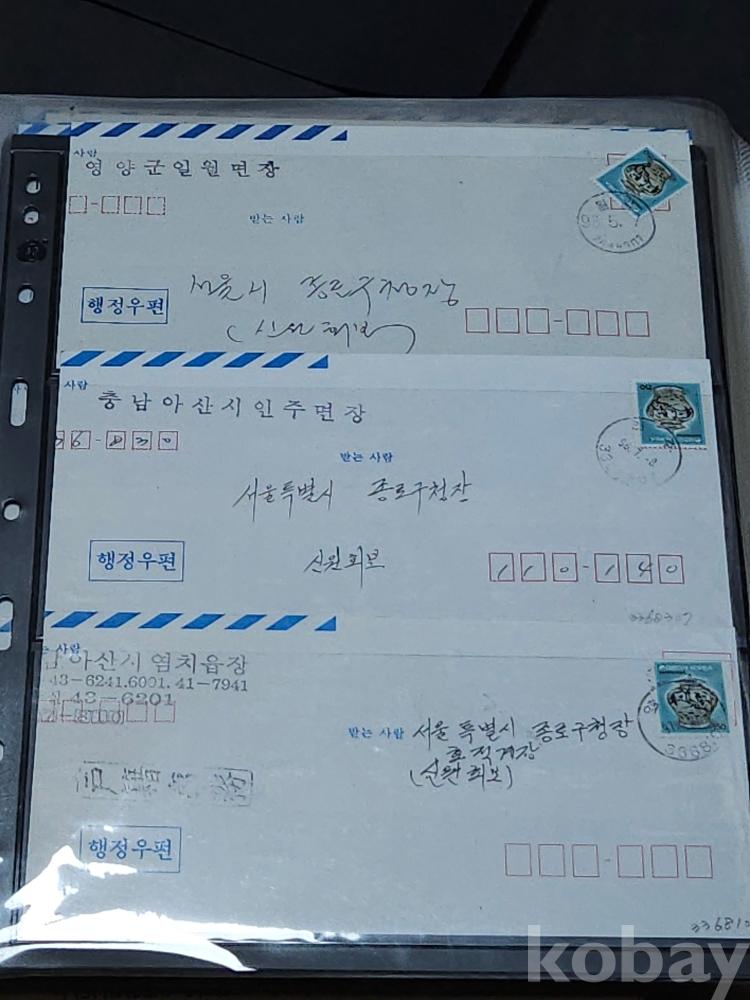 사람
영양군일원면장
받는 사람
서울시 종로구청장
행정우편
사람
충남아산시인주면장
받는 사람
서울특별시 종로구청장
행정우편
신원회보
110-140
3368307
는 사람
아산시 염치읍장
43-6241.6001.41-7941
43-6201
받는 사람 서울특별시 종로구청장
호적계장
(신원회보)
행정우편
kobay